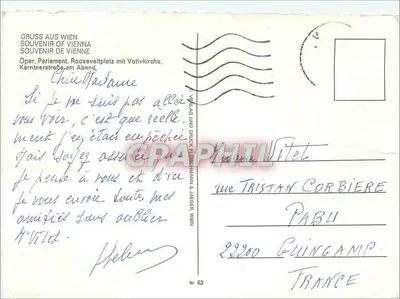 GRUSS AUS WIEN
SOUVENIR OF VIENNA
SOUVENIR DE VIENNE
Oper, Parlament, Rooseveltplatz mit Votivkirche,
Kärntnerstraße am Abend
Chère Madame
Si je ne suis pas allée
vous voir, c'est que réelle-
ment j'en étais empêchée
Mais soyez assurée que
je pense à vous et
je vous envoie toutes mes
amitiés sans oublier
Mr Vitet.
VERLAG UND DRUCK & JAEGER, WIEN
GRAPHILI
Vitet
rue TRISTAN CORBIÈRE
PABU
22200 GUINGAMP.
FRANCE
Nr 63